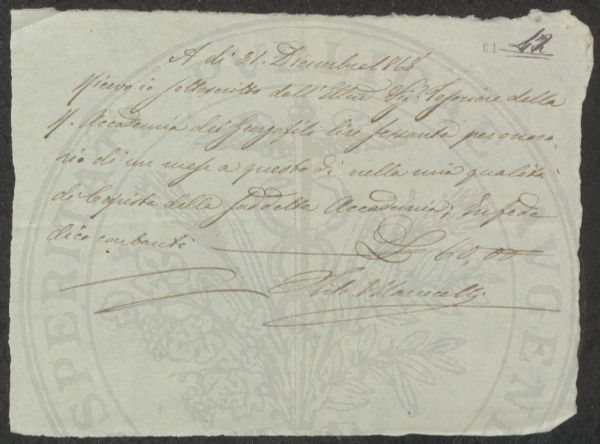 42
A dì 31. Dicembre 1868
Ricevo io sottoscritto dall'Ill.mo Sig.r Tesoriere della
R. Accademia dei Georgofili lire sessanta per onora-
rio di un mese a questo dì nella mia qualità
di Copista della suddetta Accademia; In fede
dico contanti L 60,00